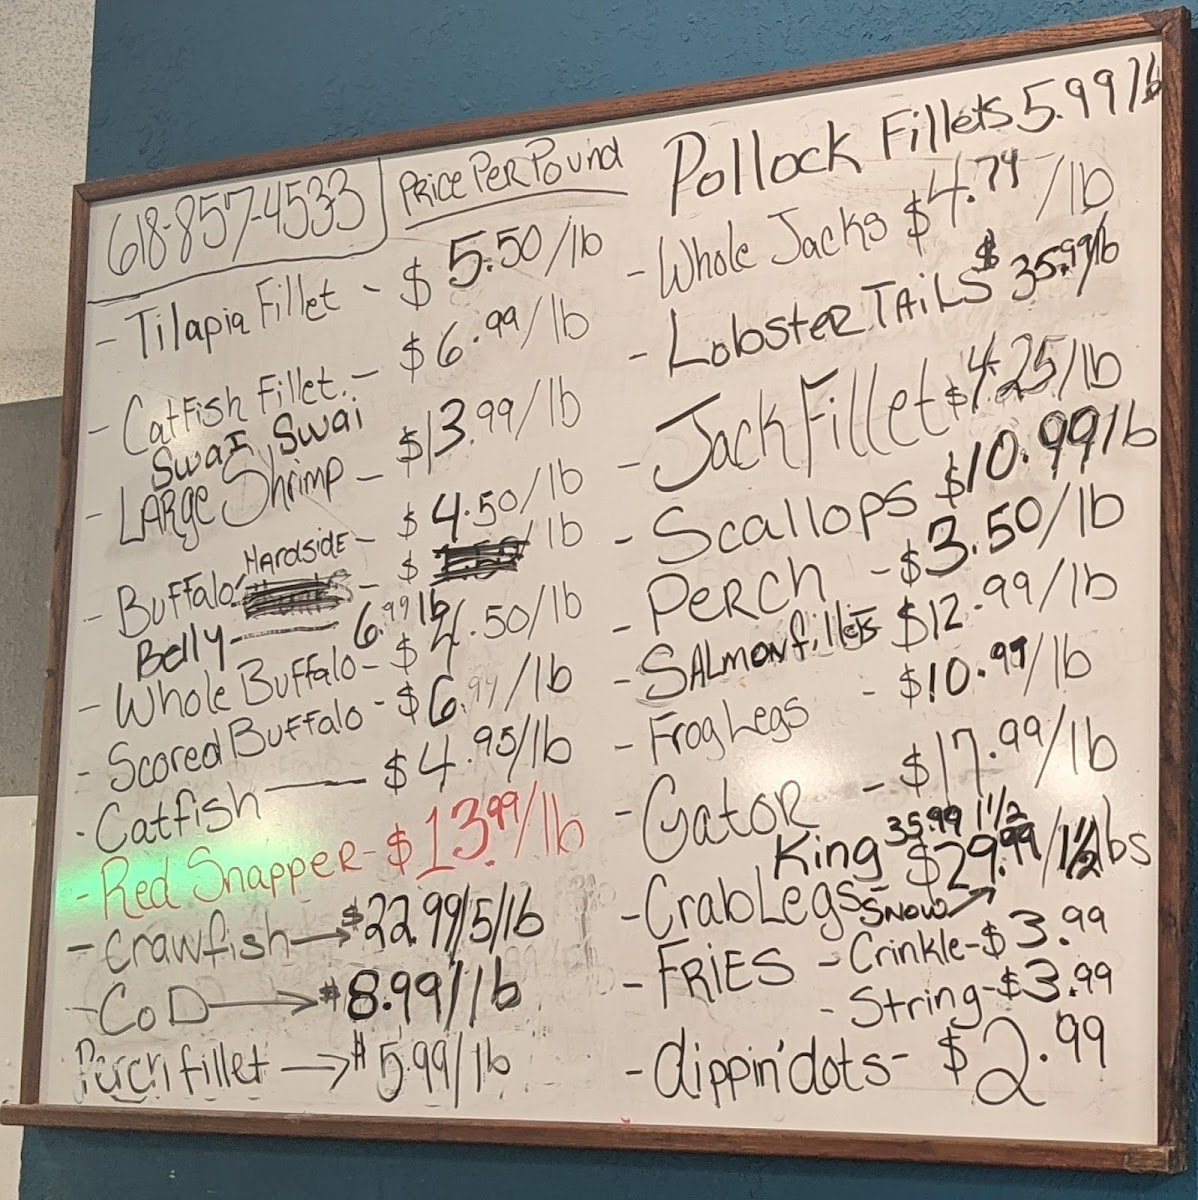 618-857-4533
Price Per Pound
- Tilapia Fillet - $5.50/lb
- Catfish Fillet. - $6.99/lb
Swai Swai
- LARGE Shrimp - $13.99/lb
Hardside - $4.50/lb
- Buffalo - $ /lb
Belly 6.99 lb
- Whole Buffalo - $4.50/lb
- Scored Buffalo - $6.99/lb
- Catfish $4.95/lb
- Red Snapper - $13.99/lb
- Crawfish → $22.99/5/lb
- CoD → $8.99/1lb
Perch fillet → $5.99/1lb
Pollock Fillets 5.99 lb
- Whole Jacks $4.79/lb
- Lobster TAiLS $35.99/lb
- Jack Fillet $4.25/lb
- Scallops $10.99 lb
- PERCH - $3.50/lb
- SALMON fillets $12.99/lb
- Frog Legs - $10.99/lb
- Gator - $17.99/lb
King 35.99 1 1/2
- Crab Legs - $29.99/1 1/2 lbs
Snow →
- FRIES - Crinkle - $3.99
- String - $3.99
- dippin' dots - $2.99